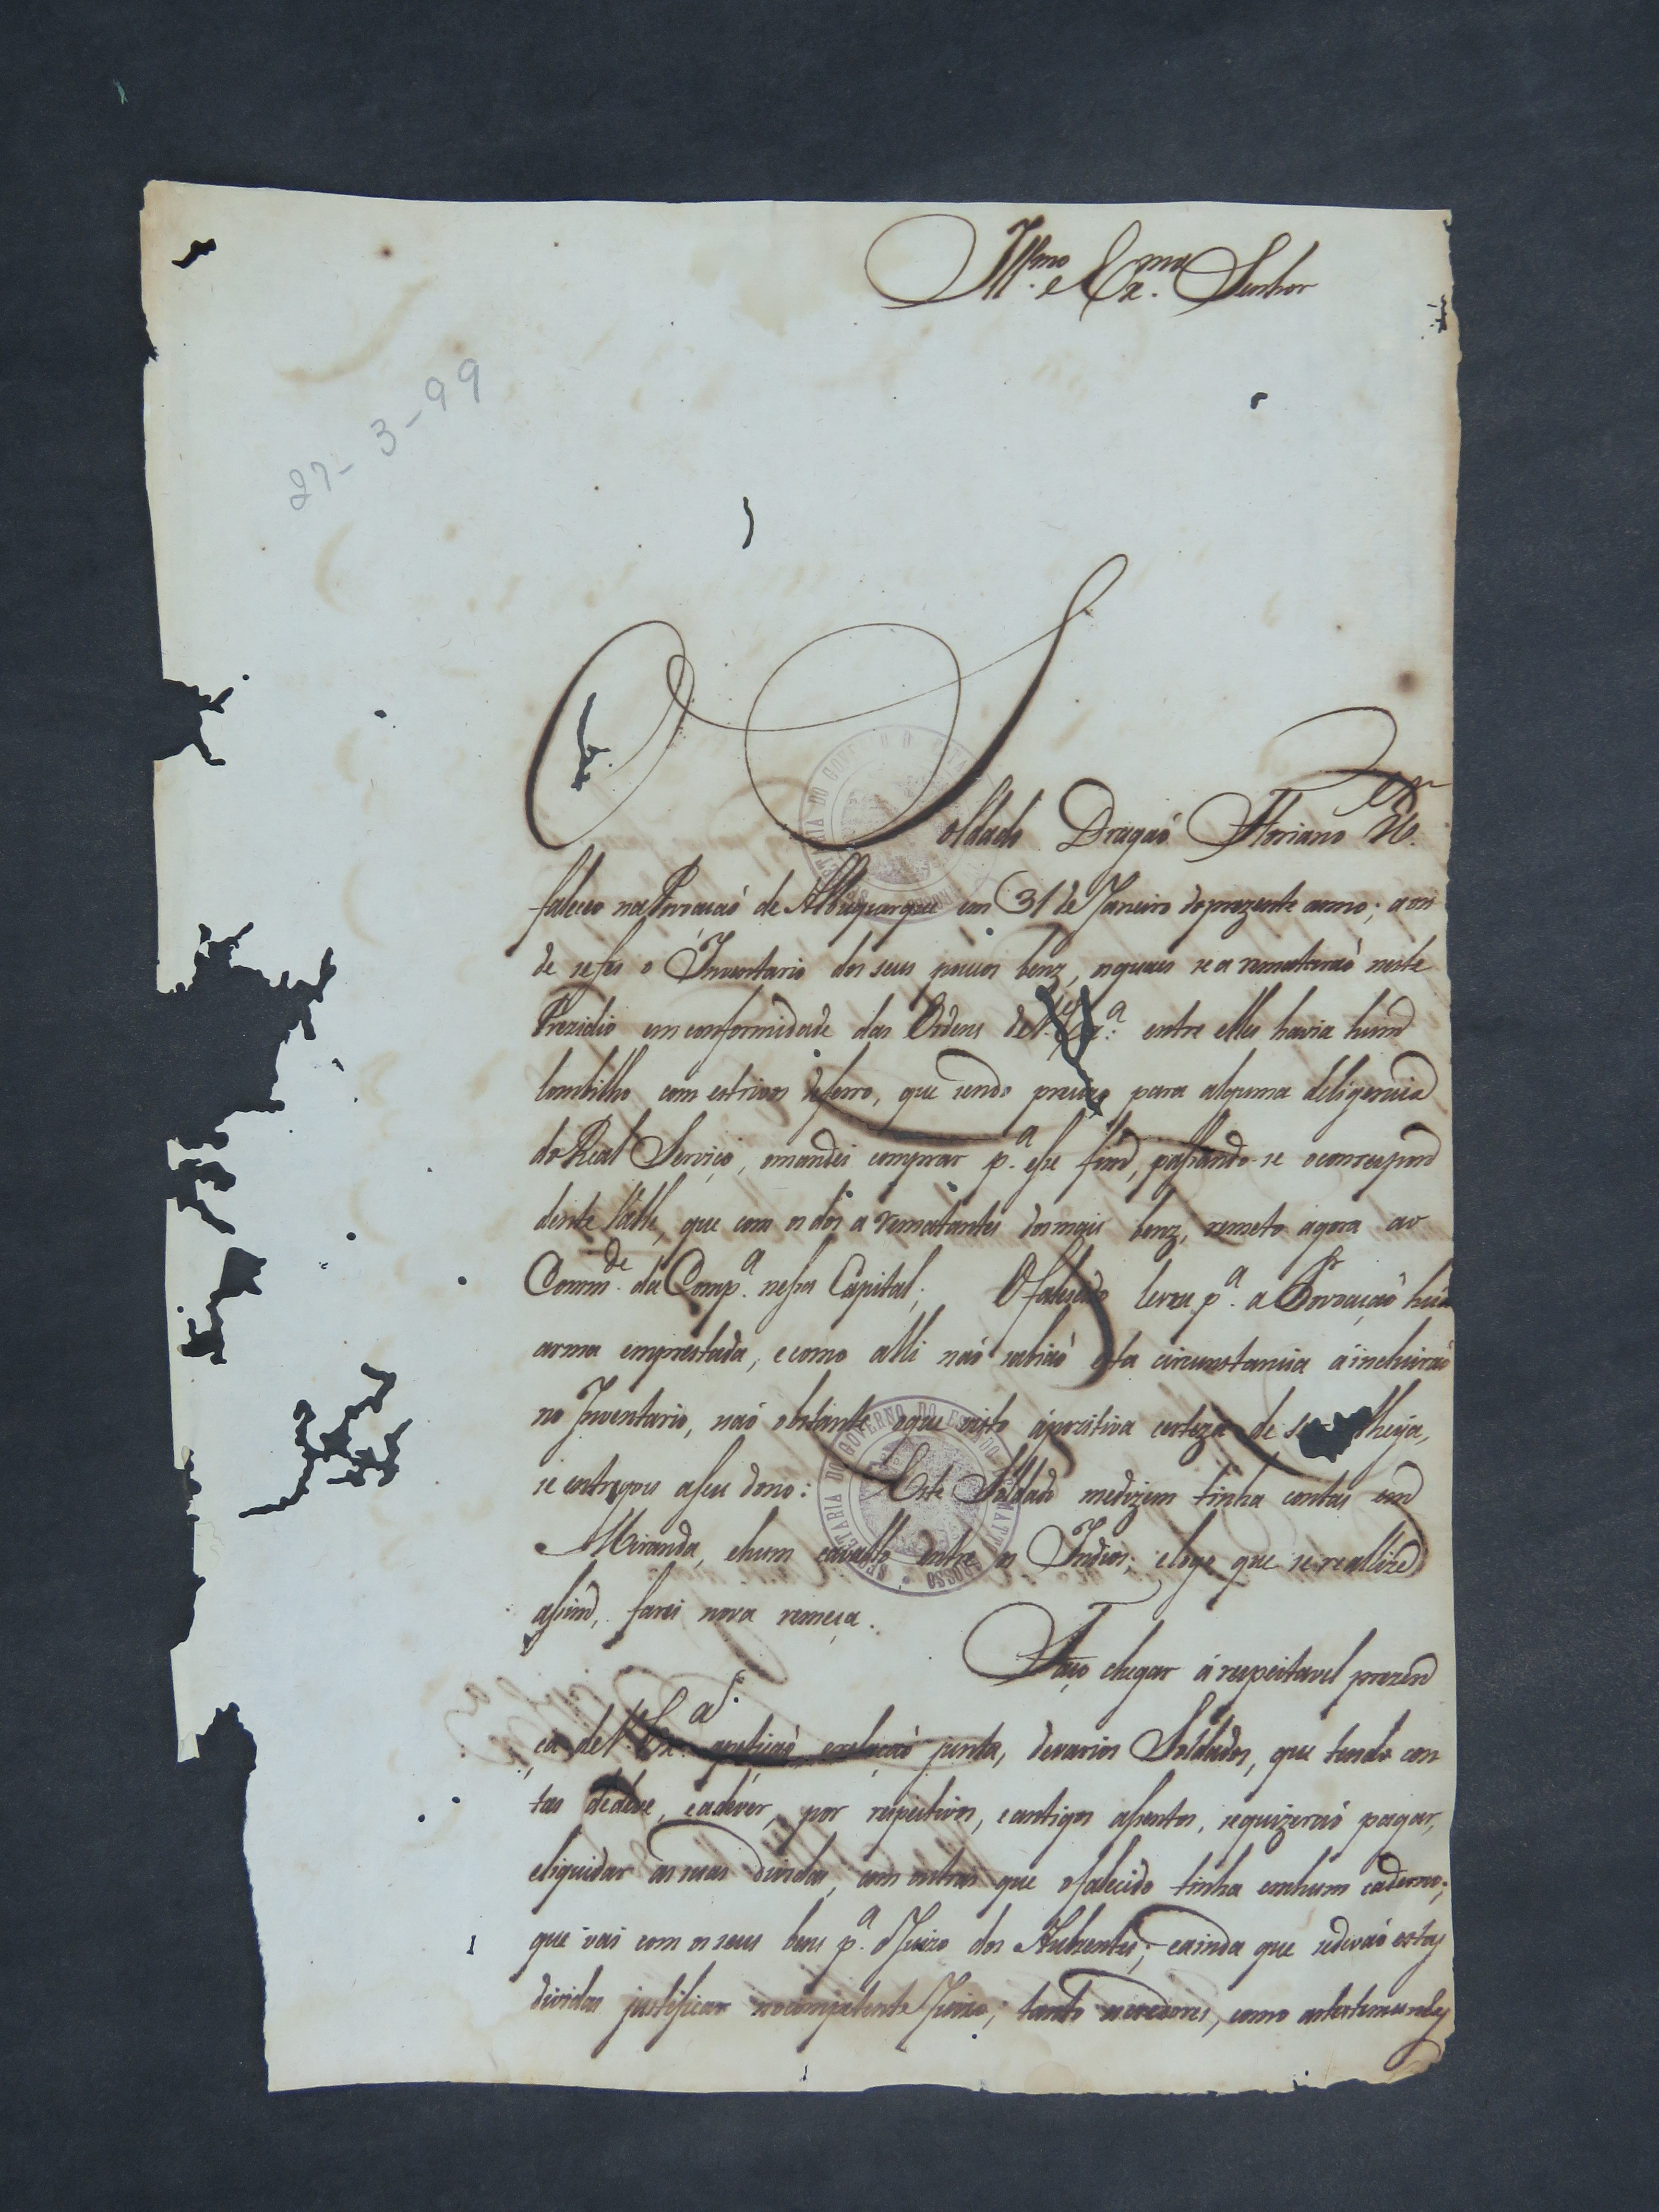 Ill.mo e Ex.mo Senhor
27-3-99
O Soldado Dragaõ Floriano
faleceo na Povoacaõ de Albuquerque em 31 de Janeiro do prezente anno; aon
de se fes o Inventario dos seus poucos benz, os quaes se a remataraõ neste
Prezidio em conformidade das Ordens de V. Ex.ª entre elles havia hum
lombilho com estrivos de ferro, que sendo precizo para alguma deligencia
do Real Serviço, o mandei comprar p.ª esse fim, passando-se o correspon
dente Vale, que com os dos a rematantes dos mais benz, remeto agora ao
Comm.de da Comp.ª nessa Capital. O falecido levou p.ª a Povoaçaõ hua
arma emprestada, e como alli naõ sabiaõ esta circunstancia a incluiraõ
no Inventario, naõ obstante o que visto a pozitiva certeza de ser alheya,
se entregou a seu dono: Este Soldado me dizem tinha contas em
Miranda, e hum cavallo entre os Indios; e logo que se reallize
assim, farei nova remeça.
Faço chegar á respeitavel prezen
ça de V. Ex.ª a petiçaõ, e relaçaõ junta, de varios Soldados, que tendo con
tas de deve, e a dever, por respectivos, e antigos assentos, se quizeraõ pagar,
e liquidar as suas dividas, com outras que o falecido tinha em hum caderno;
que vai com os seus bens p.ª o Juizo dos Auzentes; e ainda que se devaõ estas
dividas justificar no competente Juizo; tanto acredores, como as testemunhas
SECRETARIA DO GOVERNO DO ESTADO DE MATTO GROSSO
SECRETARIA DO GOVERNO DO ESTADO DE MATTO GROSSO